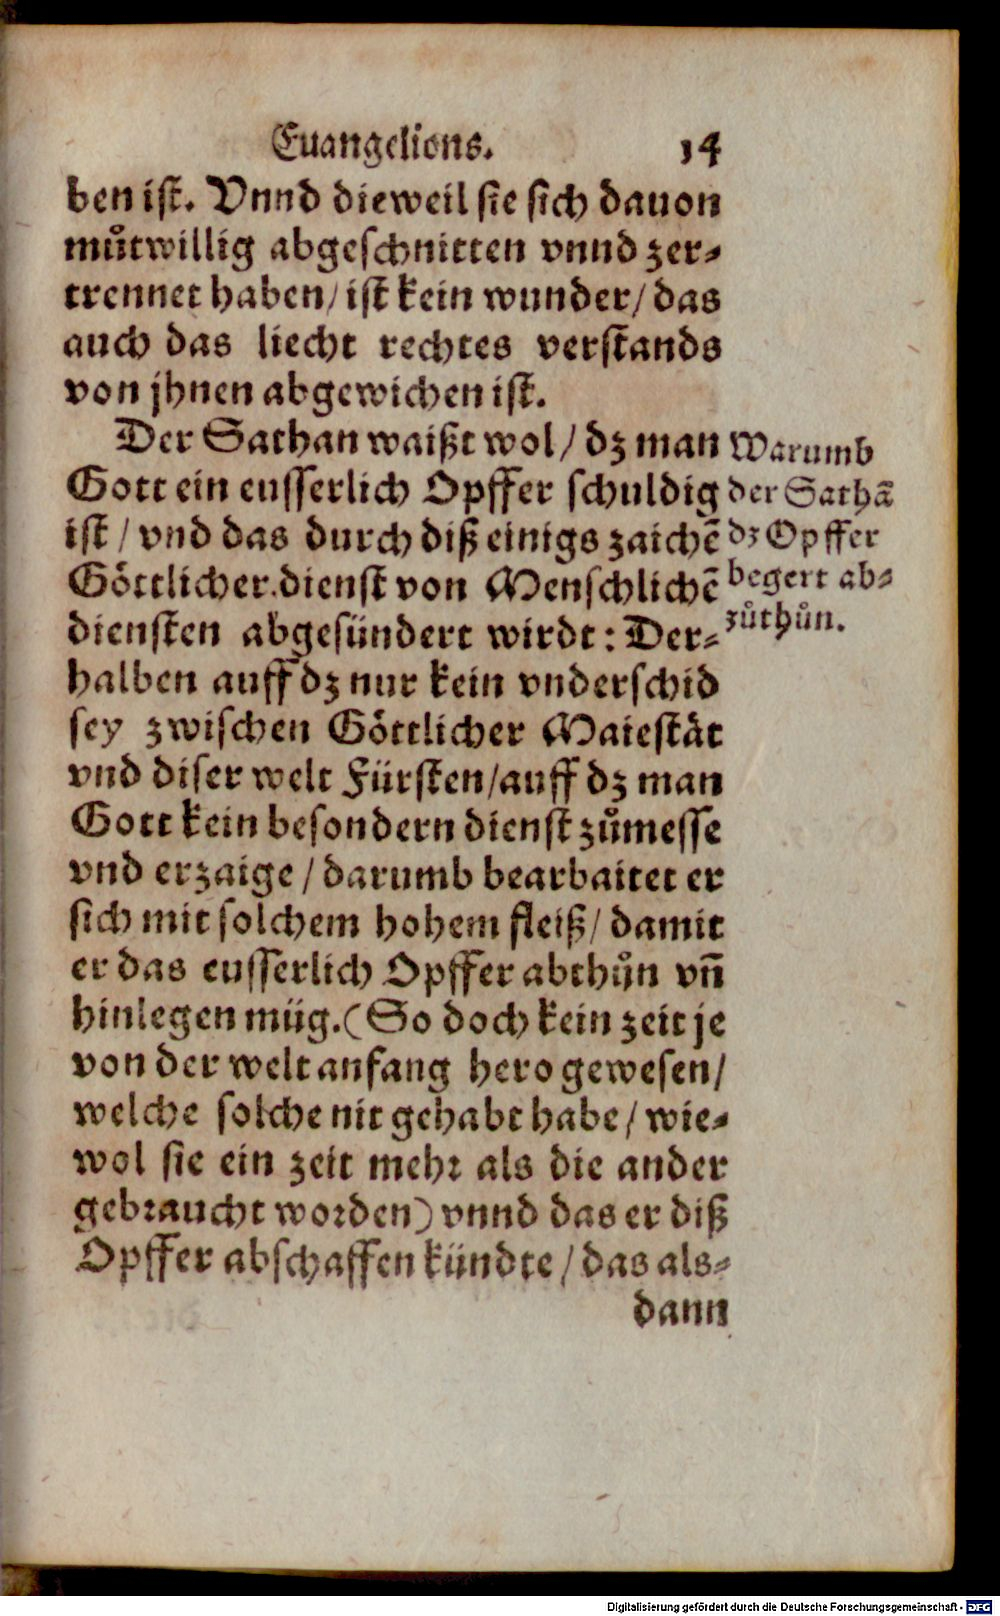 Euangelions. 14
ben ist. Vnnd dieweil sie sich dauon
můtwillig abgeschnitten vnnd zer-
trennet haben/ ist kein wunder/ das
auch das liecht rechtes verstands
von jhnen abgewichen ist.
Der Sathan waißt wol/ dz man
Gott ein eusserlich Opffer schuldig
ist/ vnd das durch diß einigs zaichē
Göttlicher dienst von Menschlichē
diensten abgesündert wirdt: Der-
halben auff dz nur kein vnderschid
sey zwischen Göttlicher Maiestät
vnd diser welt Fürsten/ auff dz man
Gott kein besondern dienst zůmesse
vnd erzaige/ darumb bearbaitet er
sich mit solchem hohem fleiß/ damit
er das eusserlich Opffer abthůn vñ
hinlegen müg. (So doch kein zeit je
von der welt anfang hero gewesen/
welche solche nit gehabt habe/ wie-
wol sie ein zeit mehr als die ander
gebraucht worden) vnnd das er diß
Opffer abschaffen kündte/ das als-
dann
Warumb
der Sathā
dz Opffer
begert ab-
zůthůn.
Digitalisierung gefördert durch die Deutsche Forschungsgemeinschaft - DFG